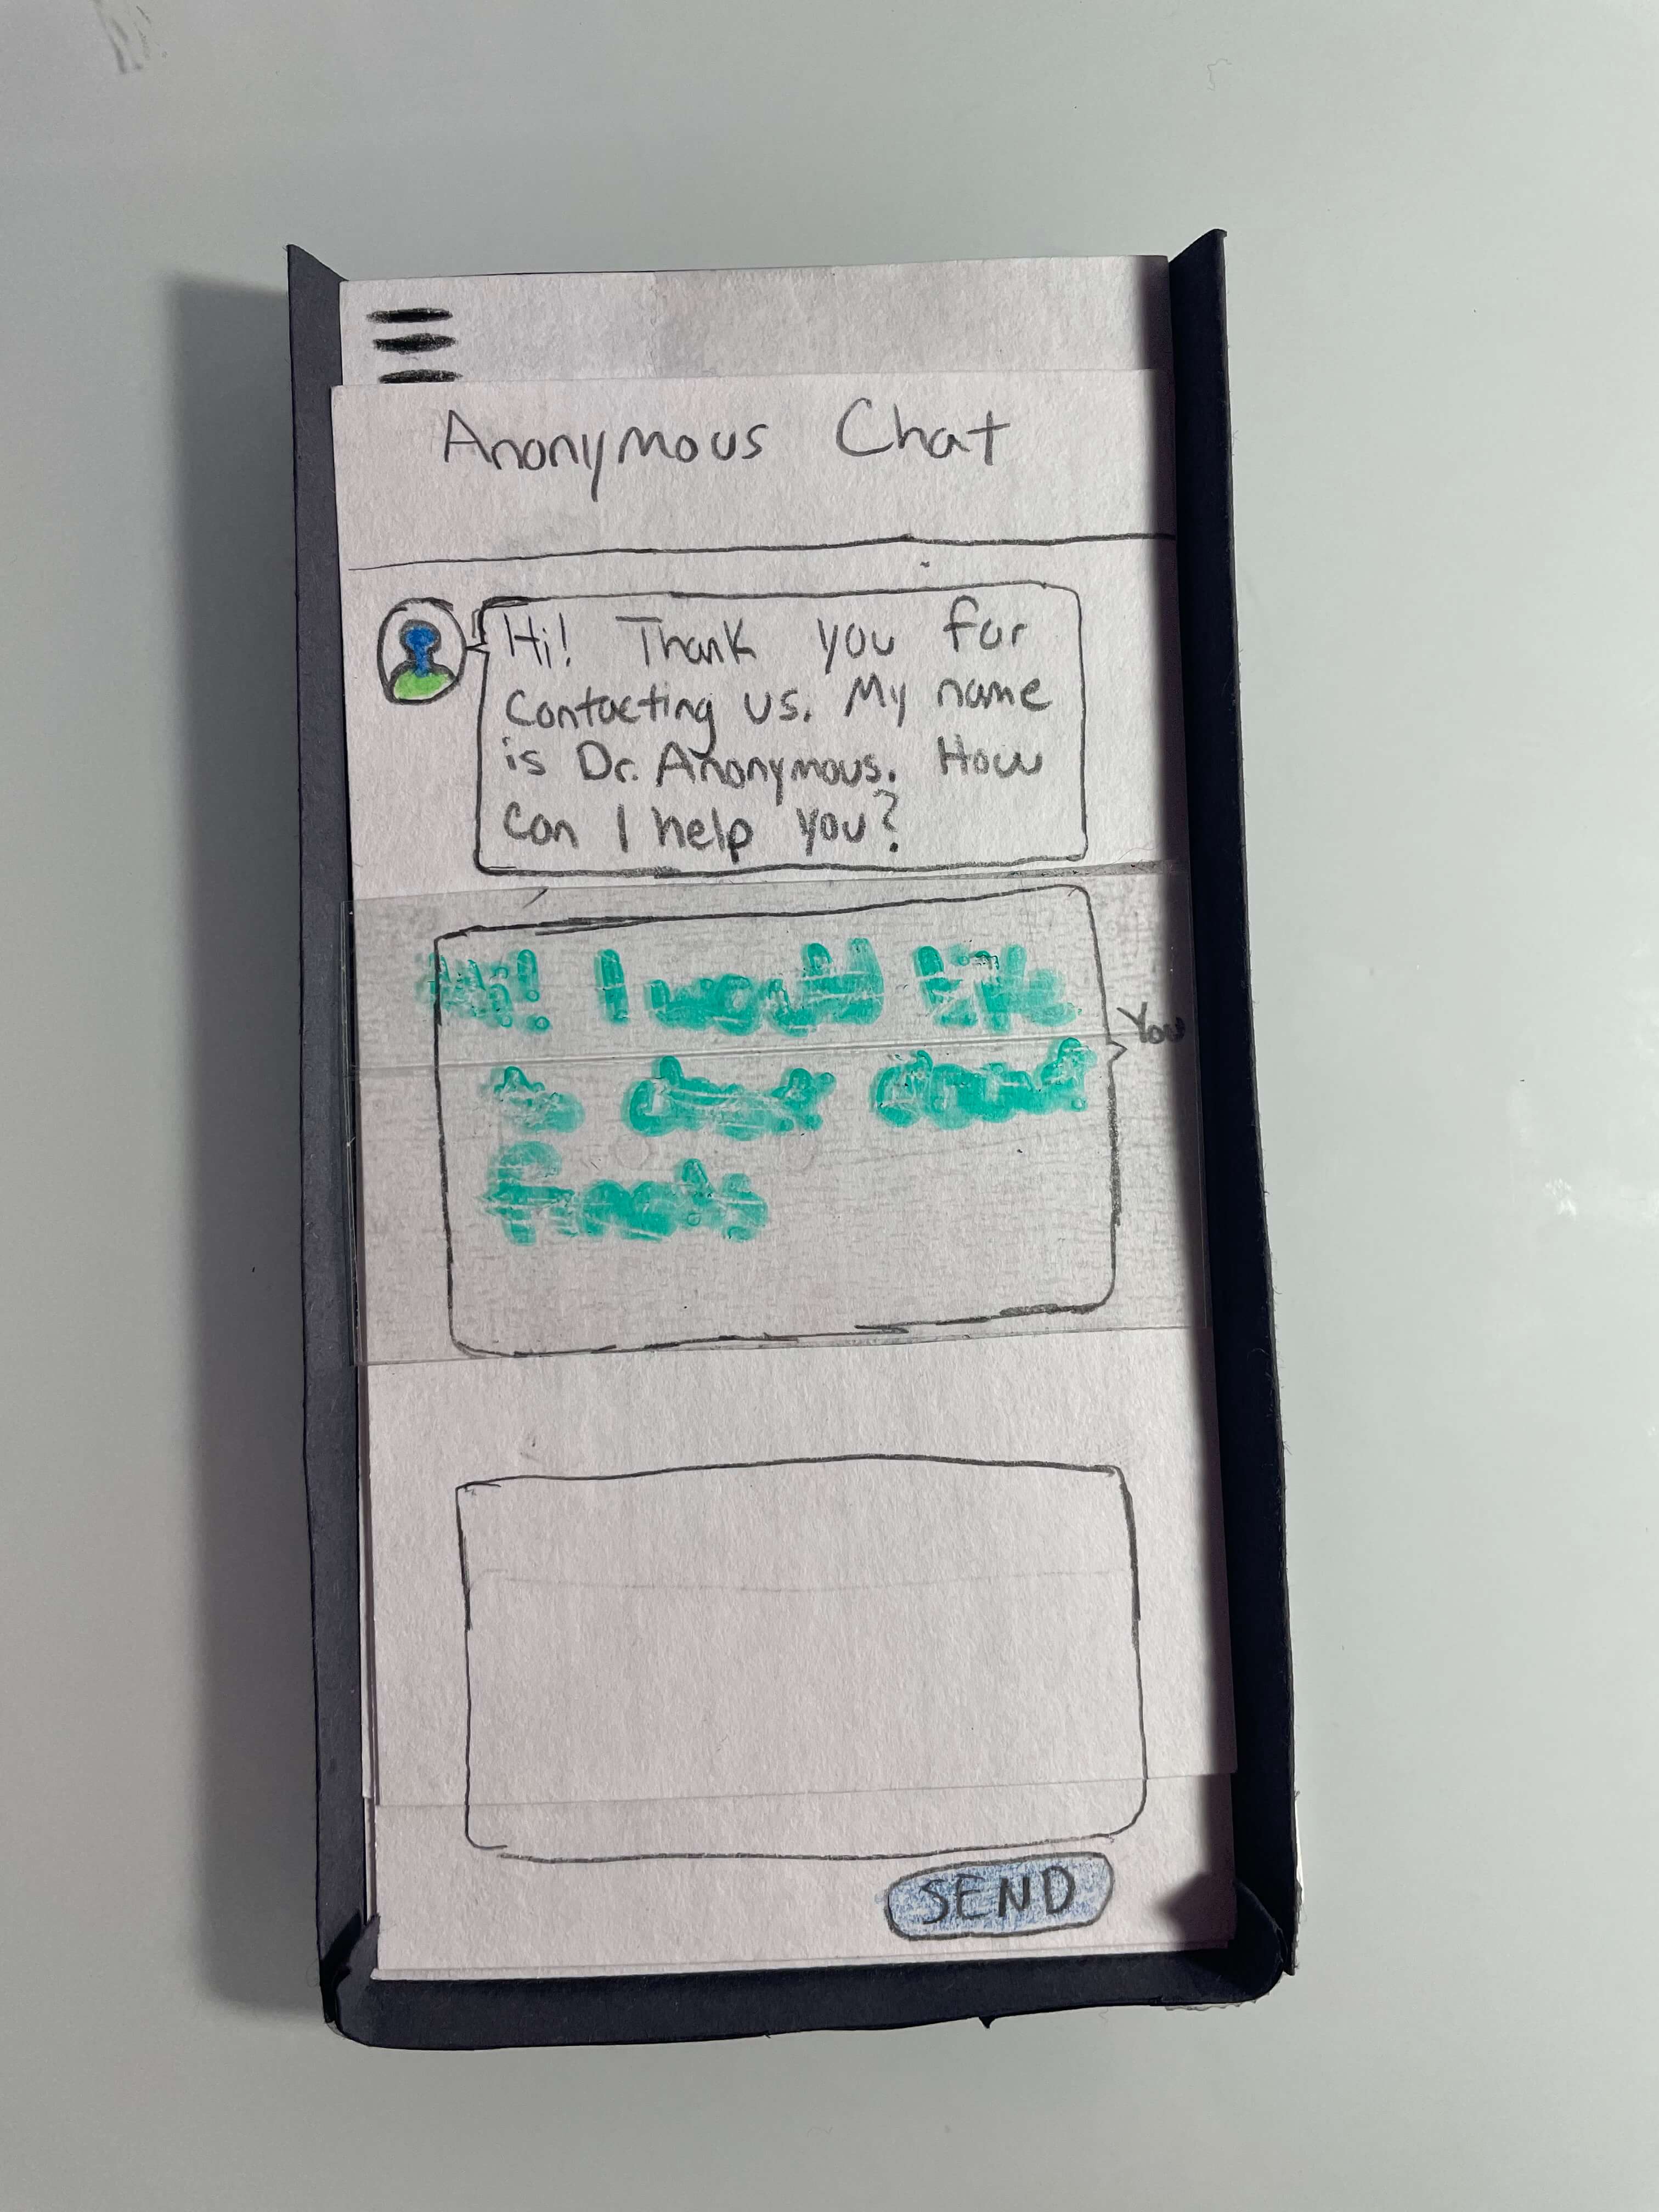 Anonymous Chat
Hi! Thank you for
contacting us. My name
is Dr. Anonymous. How
can I help you?
Hi! I would like
to
You
SEND